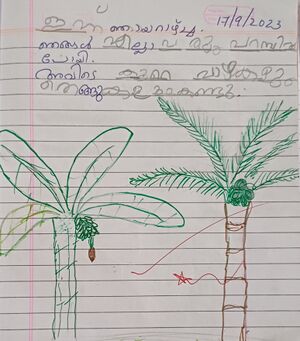 ഇന്ന് ഞായറാഴ്ച്ച. 17/9/2023
ഞങ്ങൾ എല്ലാപരും പറമ്പിൽ
പോയി.
അവിടെ കുറെ വാഴകളും